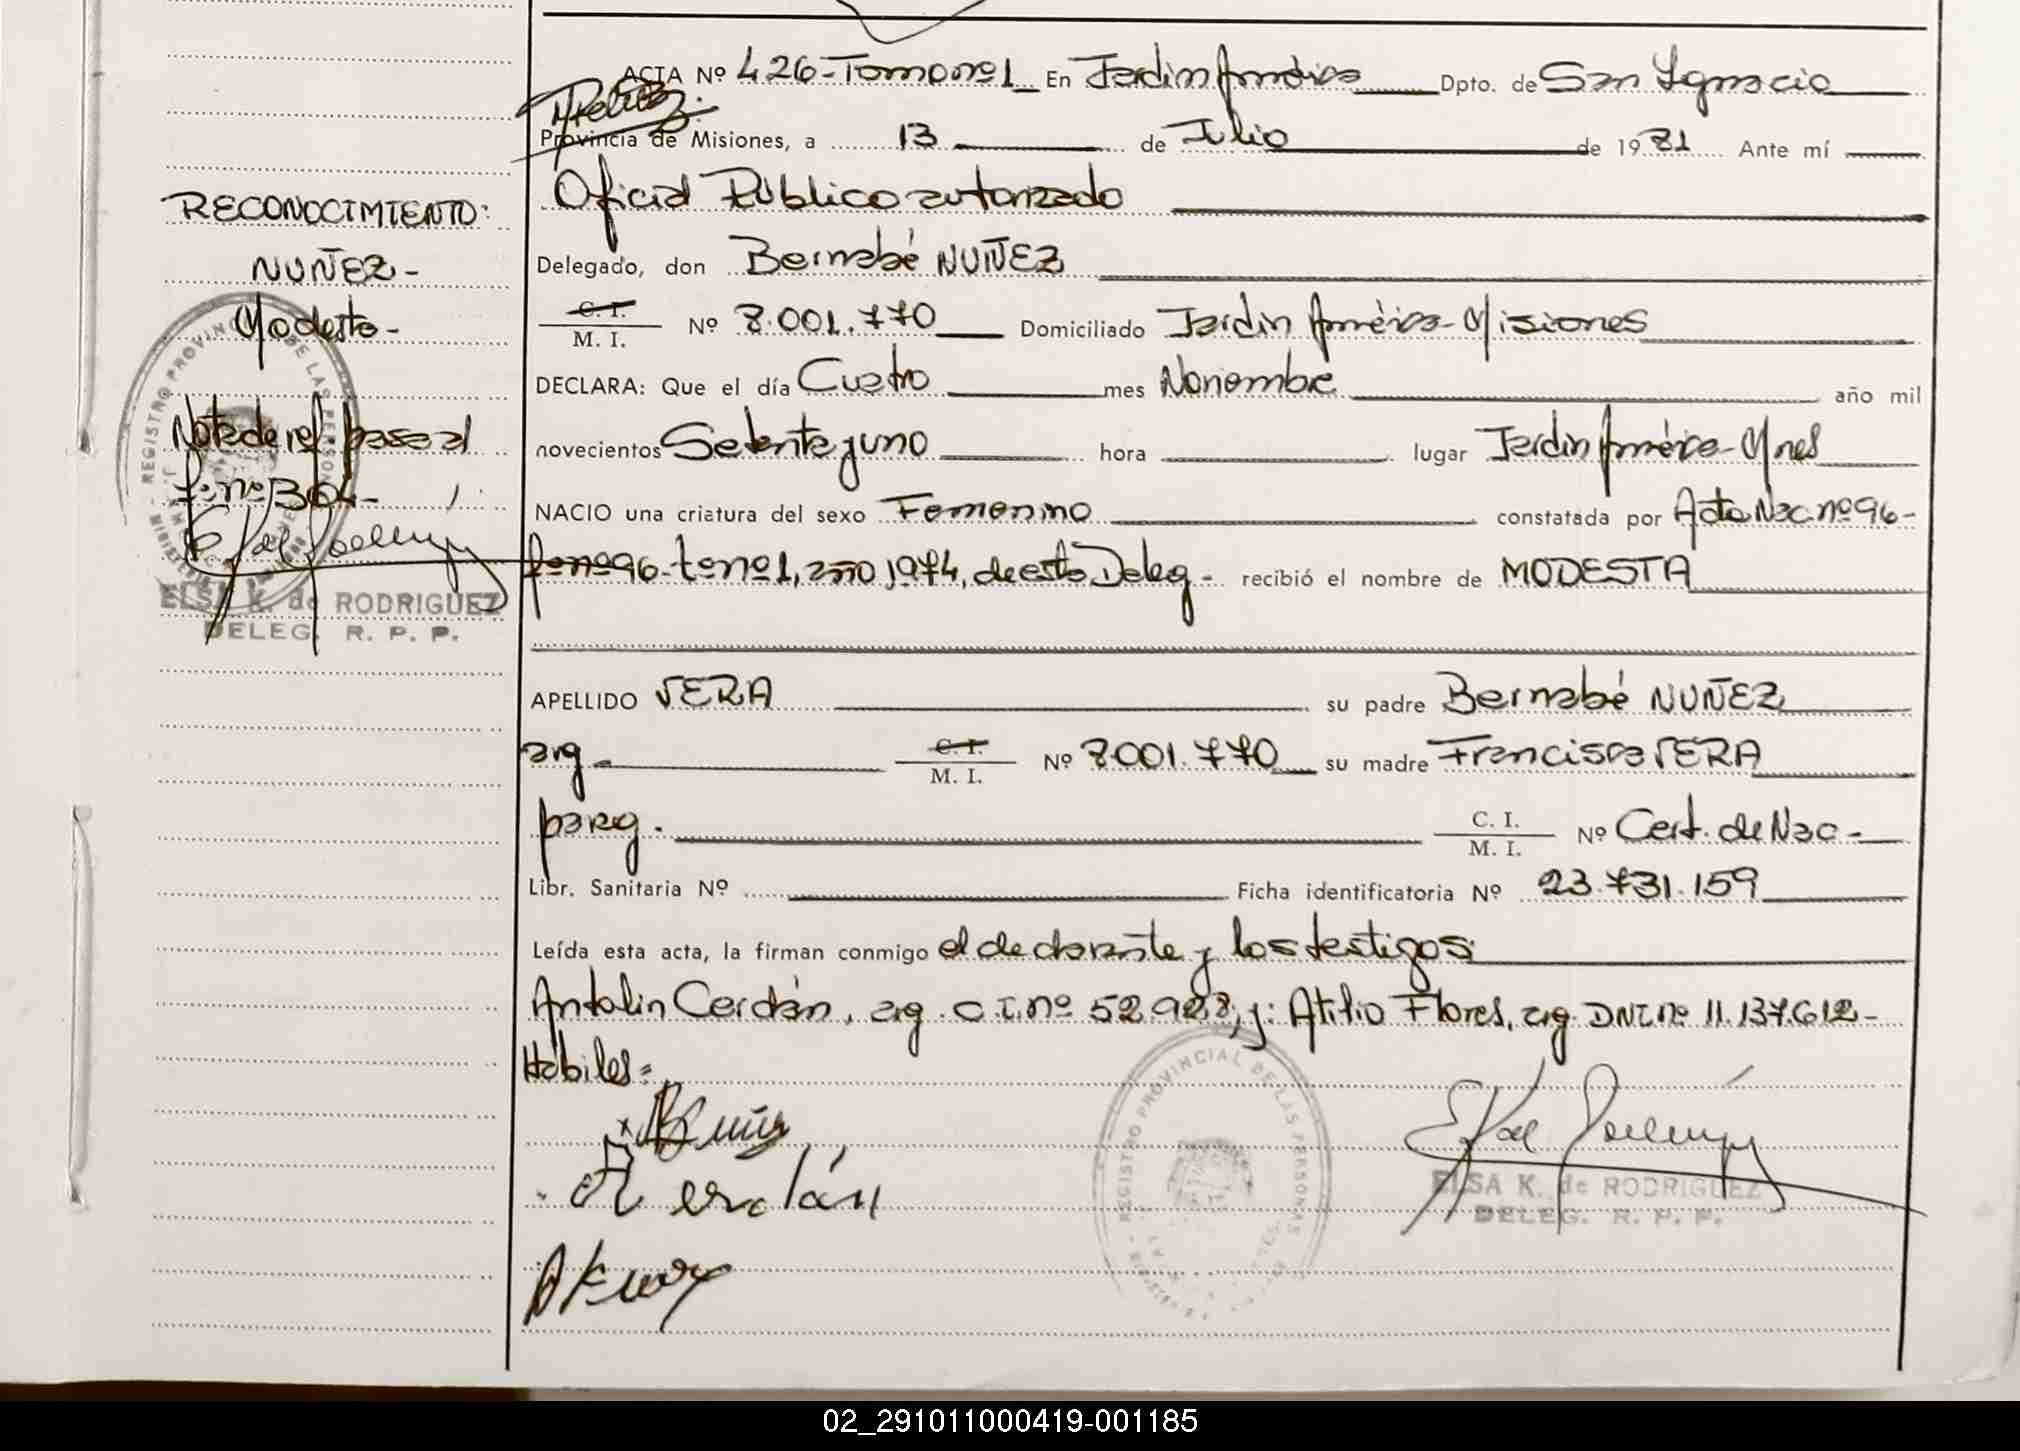 ACTA Nº 426-Tomo nº1 En Jardin América Dpto. de San Ignacio
Provincia de Misiones, a 13 de Julio de 1981 Ante mí
Oficial Público autorizado
RECONOCIMIENTO:
Delegado, don Bernabé NUÑEZ
NUÑEZ-
Modesta-
C. I.
M. I. Nº 8.001.770 Domiciliado Jardin América-Misiones
DECLARA: Que el día Cuatro mes Noviembre año mil
Nota de ref pasa al
novecientos Setenta y uno hora lugar Jardin América-Mnes
fº nº 364-
NACIO una criatura del sexo Femenino constatada por Acta Nac nº 96-
fº nº 96-tº nº 1, año 1974, de esta Deleg- recibió el nombre de MODESTA
ELSA K. de RODRIGUEZ
DELEG. R. P. P.
APELLIDO VERA su padre Bernabé NUÑEZ
arg- C. I.
M. I. Nº 8001.770 su madre Francisca VERA
parag. C. I.
M. I. Nº Cert. de Nac-
Libr. Sanitaria Nº Ficha identificatoria Nº 23.731.159
Leída esta acta, la firman conmigo el declarante y los testigos:
Antolin Cerdán, arg. C.I.nº 52.928, y: Atilio Flores, arg. DNI nº 11.137.612-
Hábiles=
REGISTRO PROVINCIAL DE LAS PERSONAS
ELSA K. de RODRIGUEZ
DELEG. R. P. P.
02_291011000419-001185